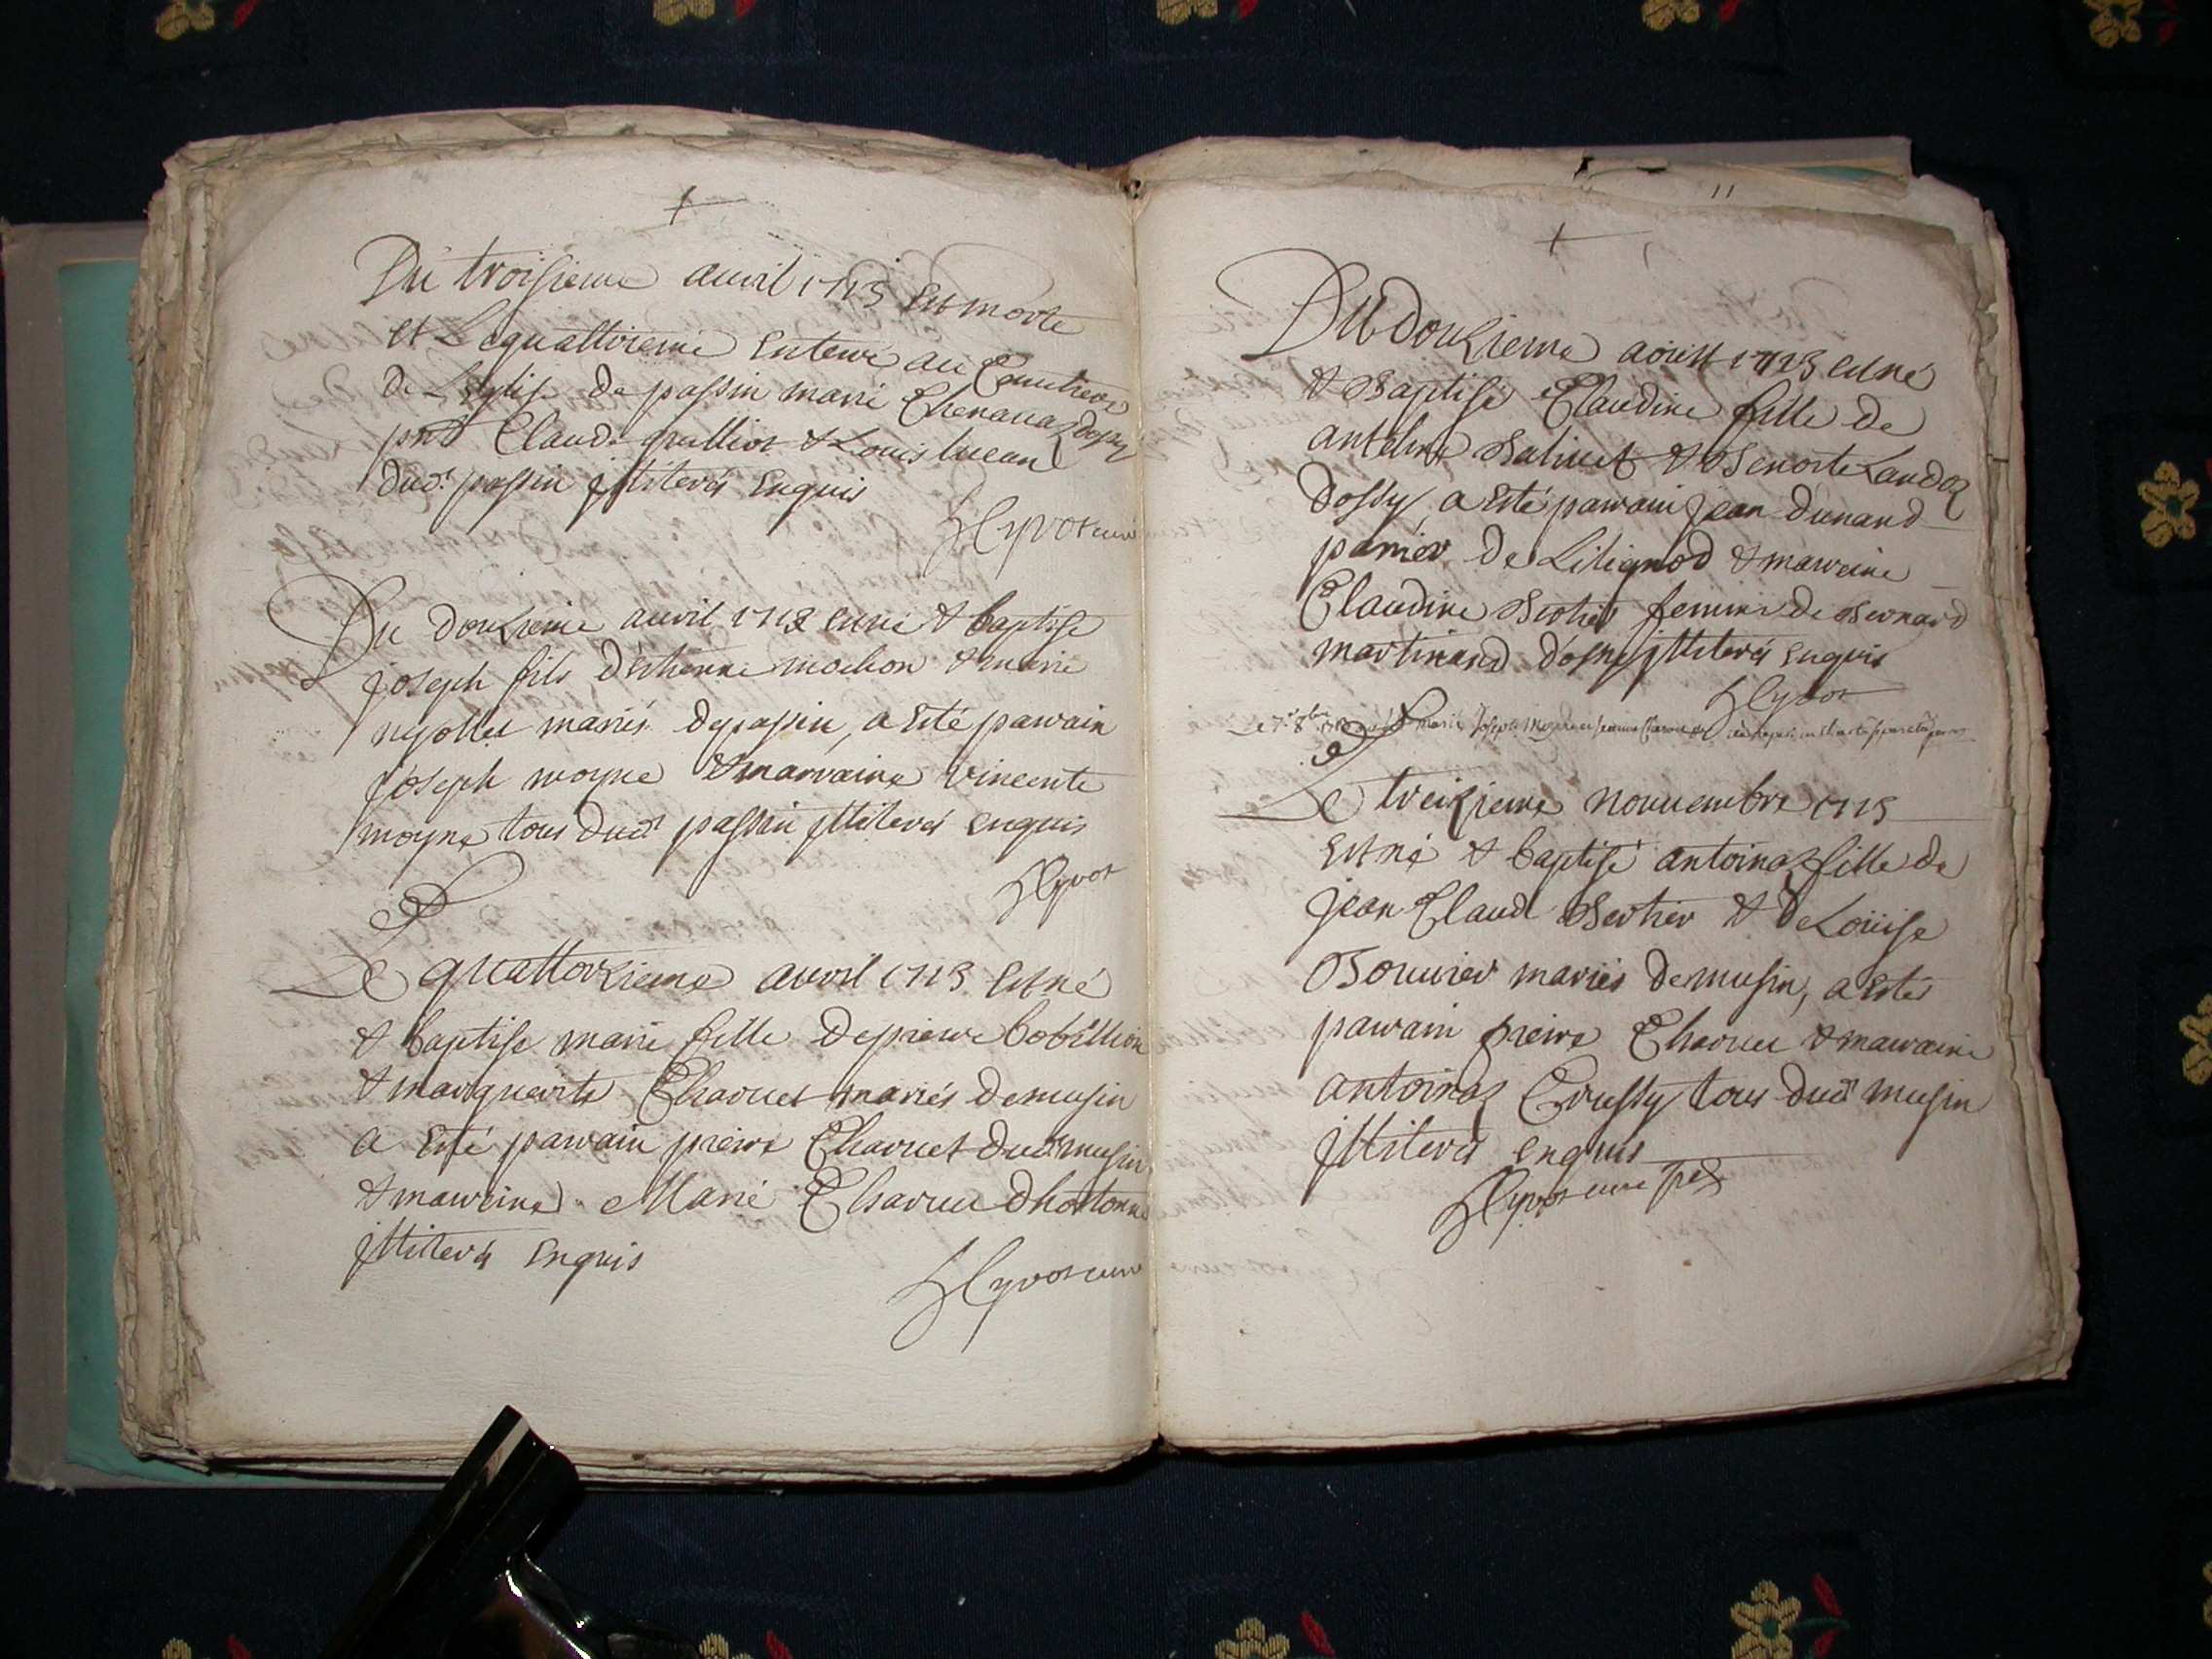 Du troisieme auvril 1713 est morte
et Le quattrieme enterré au Cemitiere
de L'eglise de passin marie Chenaua dossy
pnt Claude guillot & Louis lucan
dud. passin jlliterés enquis
Hyvot curé
Du douzieme auvril 1713 est né & baptisé
joseph fils d'estienne mochon & marie
mariés de passin, a esté parrain
joseph moyne & marraine vincente
moyne tous dud. passin jlliterés enquis
Hyvot
Le quattorzieme auvril 1713 est né
& baptisé marie fille de pierre bobillion
& marguerite Charuet mariés de musin
a esté parrain pierre Charuet dud. musin
& marreine Marie Charuet d'hotonne
jlliterés enquis
Hyvot curé
11
Du douzieme aoust 1713 est né
& Baptisé Claudine fille de
antelme Balivet & Benoite Landoz
dossy, a esté parrain jean dunand
panier de Lilignod & marreine
Claudine Berthet femme de Bernard
martinand d'osne jlliterés enquis
Hyvot
Le marié joseph &
Le treizieme nouuembre 1713
est né & baptisé antoinaz fille de
jean Claude Berthier & de Loüise
Bouuier mariés de musin, a estés
parrain pierre Charuet & marraine
antoinaz Crussy tous dud. musin
jlliterés enquis
Hyvot curé